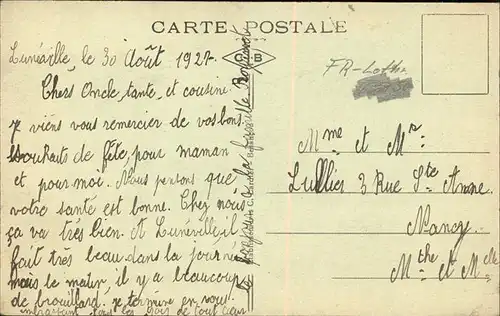 CARTE POSTALE
Lunéville, le 30 Août 1927.
C B
Chers Oncle, tante, et cousine
Je viens vous remercier de vos bons
souhaits de fête, pour maman
et pour moi. Nous pensons que
votre santé est bonne. Chez nous
ça va très bien. A Lunéville, il
fait très beau dans la journée
mais le matin, il y a beaucoup
de brouillard. Je termine en vous
embrassant tous les trois de tout cœur
La famille
FR-Loth
Mme et Mr
Lullier 3 Rue Ste Anne
Nancy
Mthe et Mlle